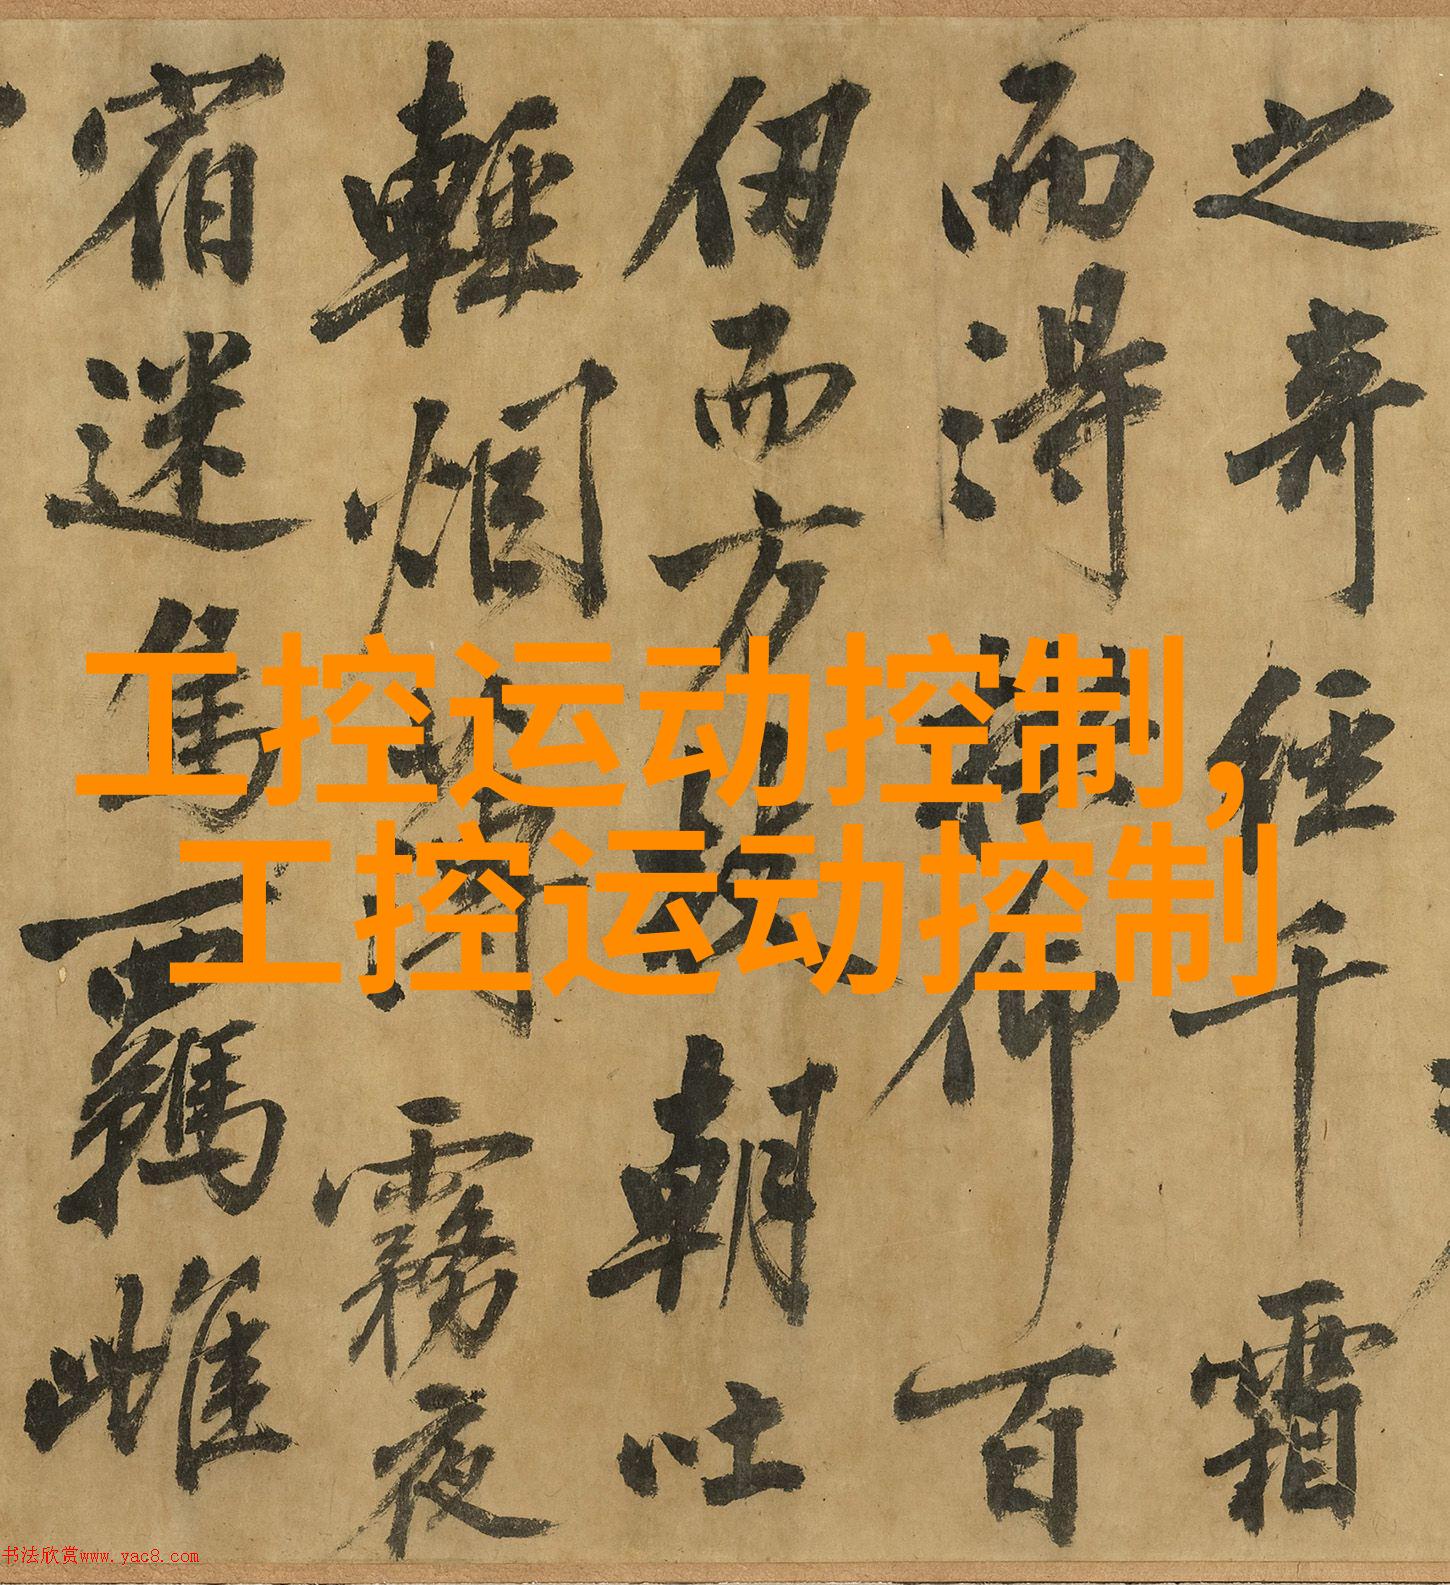 之奇經千霜
而得拱仰百
仞而方枝朝吐
輕烟薄霧夜
宿迷鳥羈雌
工控运动控制,
工控运动控制
书法欣赏www.yac8.com